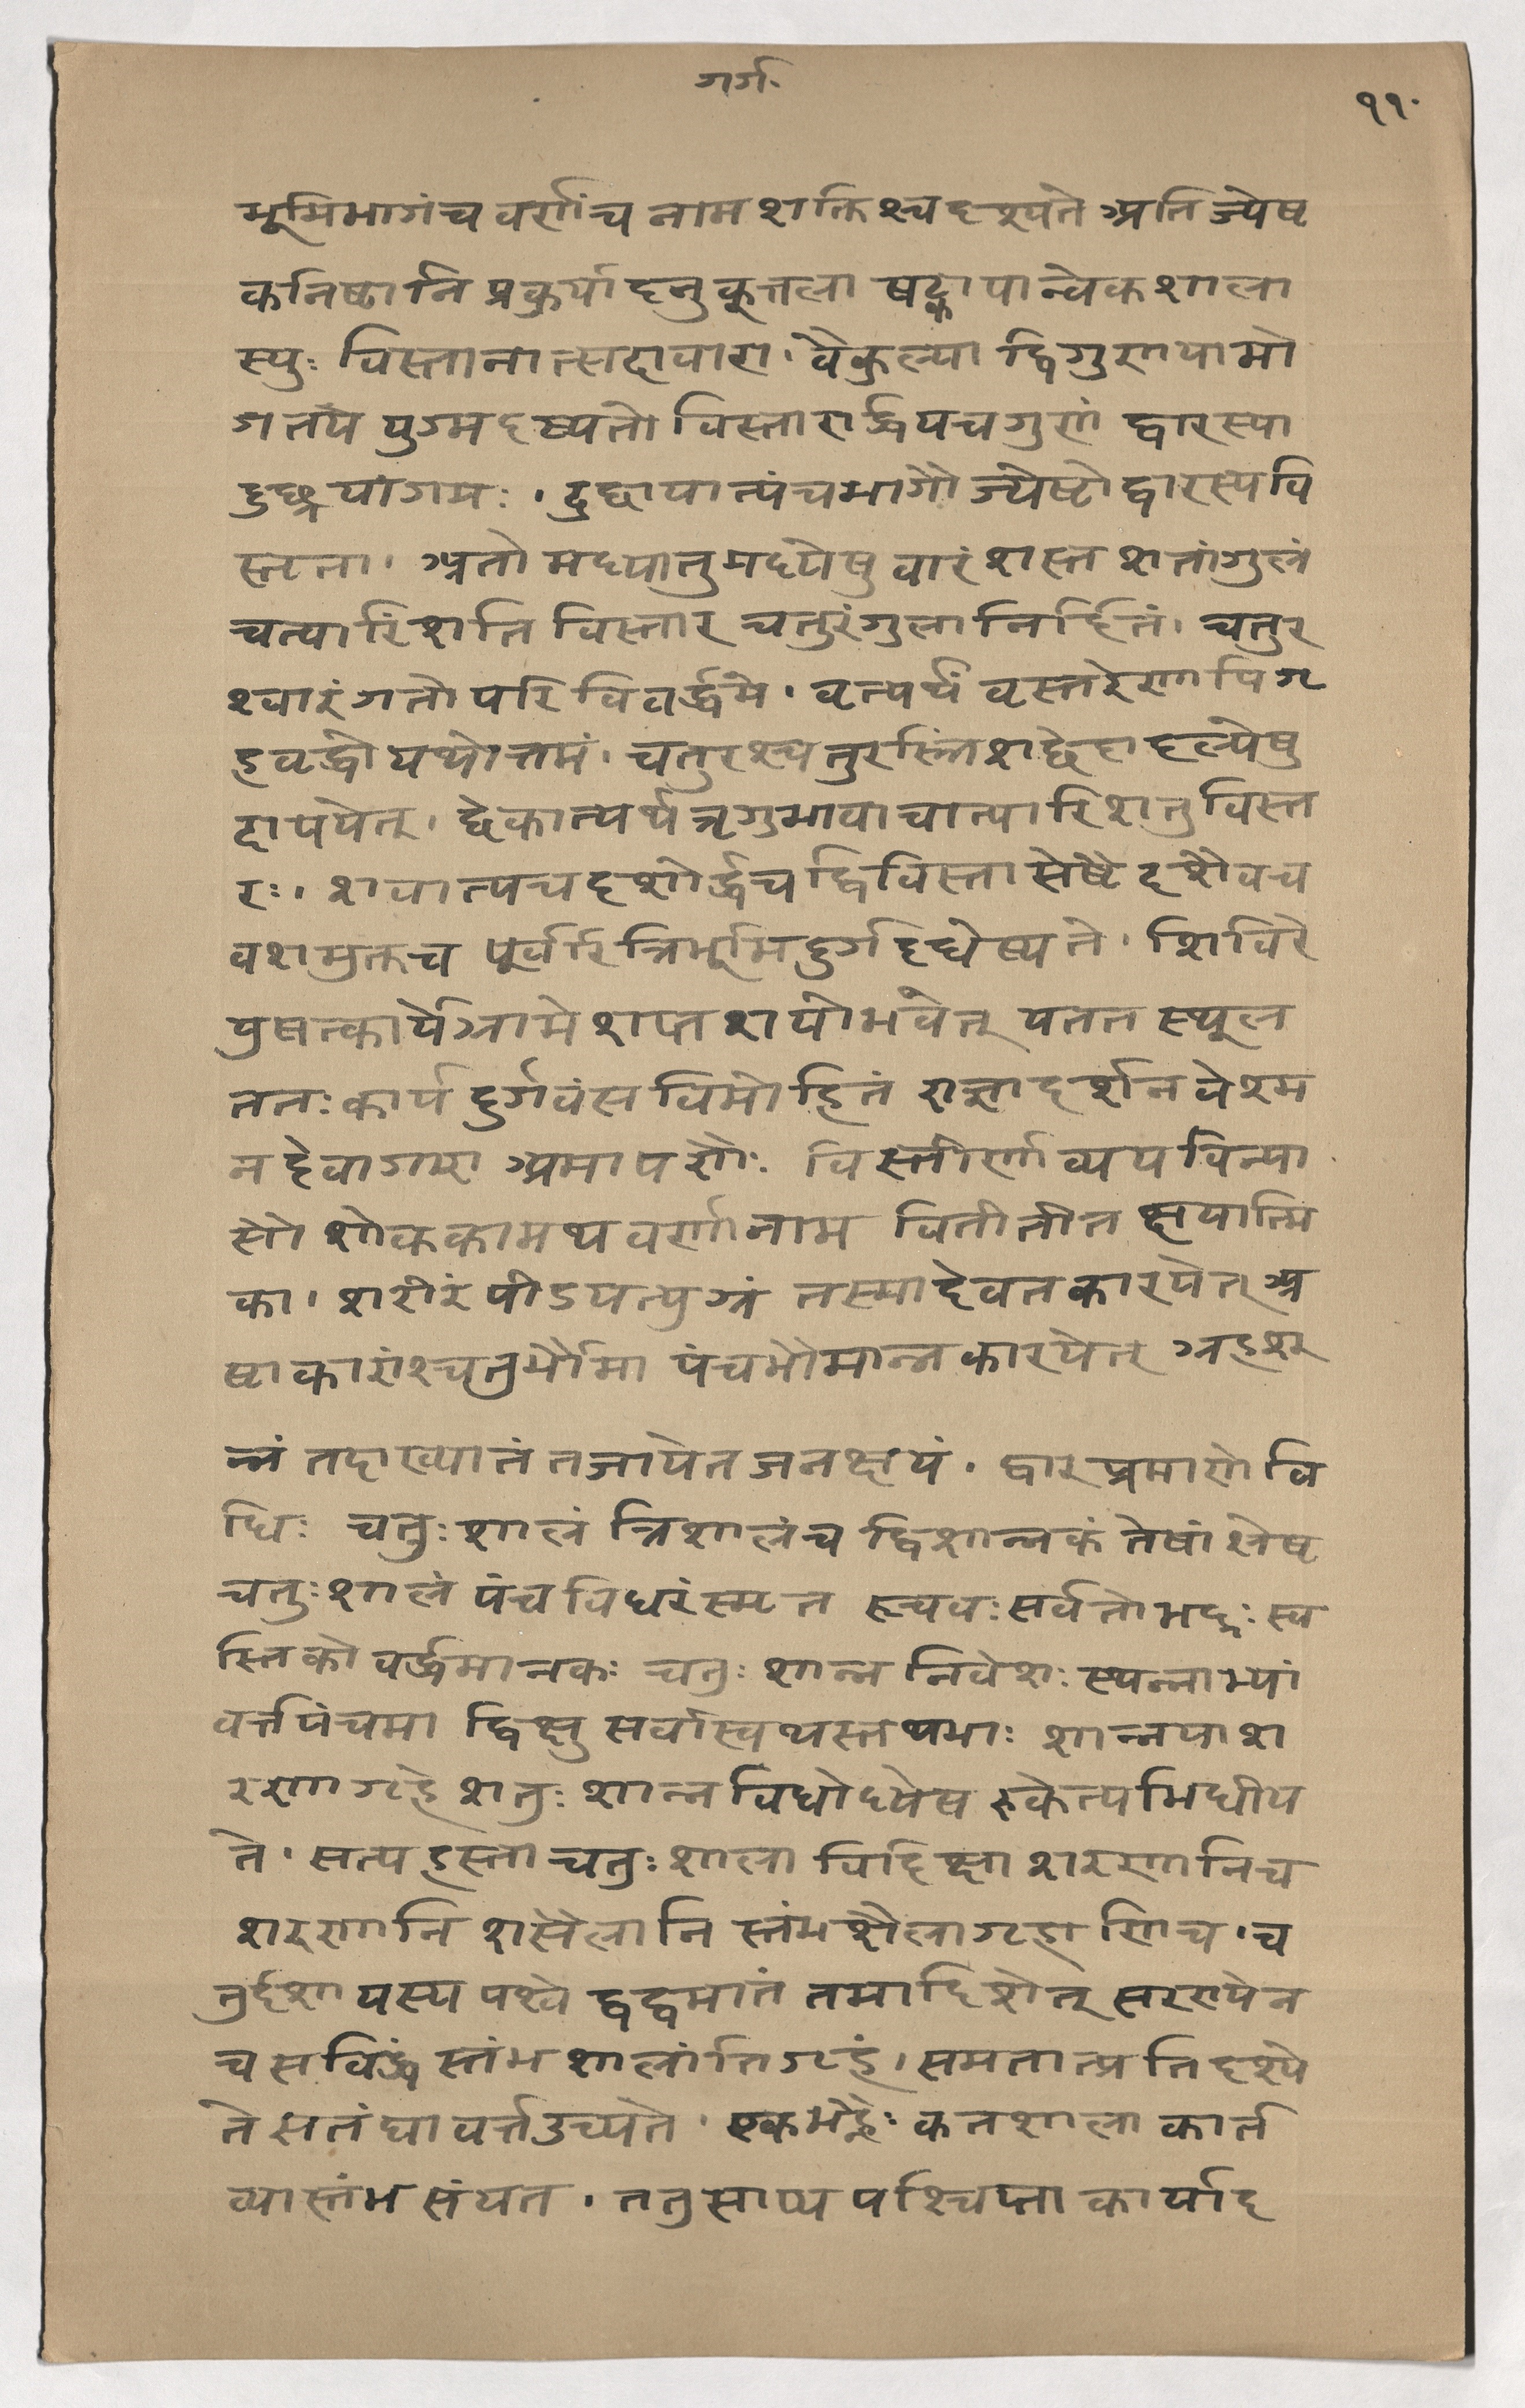 गर्ग·
११·
भूमिभागंच वर्णांच नाम शक्तिश्च दृश्यते अति ज्येष्ट
कनिष्टानि प्रकुर्या दनुकूत्तला षट्कापान्वेकशाला
स्युः विस्तानात्सदावारा· वैकुल्या द्विगुणयामो
गतये युग्मदृष्यतो विस्तारार्द्धपचगुणं द्वारस्या
दुछ्रयागमः · दुछायात्पंचभागो ज्येष्टो द्वारस्यवि
स्तता· अतो मध्यातुमध्येषु वारं शस्त शतांगुलं
चत्यारिंशति विस्तार चतुरंगुलानिर्हितं· चतुर
श्वारंगतोपरि विवर्द्धमे· वत्यर्थं वस्तरेणापिगृ
हवद्धो यथोत्तमं· चतुरश्चतुरस्त्रिंशद्धेदादल्पेषु
दापयेत्· द्वेकात्यर्थ तृगुभावाचात्यारिशतुविस्त
रः· शवात्पचदशोर्द्धच द्विविस्तासेष्टे दशैवच
वशमुक्तच पूर्वारि त्रिभूमि दुर्गदिघेष्यते· शिविरे
पुषत्कार्येग्रामे शप्तशयोभवेत् पतन स्थूल
ततः कार्य दुर्गवंस विमोहितं राज्ञादर्शनवेश्म
न देवागारा अमापरौः· विस्तीर्णा व्यय विन्या
सो शोककामथ वर्णानाम वितीतीत क्षयात्मि
का· शरीरं पीडयत्पुग्रं तस्मादेवतकारयेत् अ
ष्टाकारांश्चतुर्भौमा पंचभौमान्नकारयेत् ग्रहश
न्नं तदाख्यातं तजायेत जनक्षयं· द्वार प्रमाणे वि
धिः चतुः शालं त्रिशालंच द्विशान्नकं तेषां शेष्ट
चतुःशालं पंचविधरंस्मृत रूचवः सर्वतोभद्रः स्व
स्तिको वर्द्धमानकः चतुः शान्न निवेशः स्यन्नाभ्यां
वर्त्तपंचमा द्विक्षु सर्वास्वथस्तथमाः शान्नपाश
रणागृहे शतुः शान्न विधोध्येष रूकेत्यभिधीय
ते· सत्यहस्ता चतुःशाला विदिक्षा शरणानिच
शरणानि शसैलानि स्तंभशैलागृहाणिच· च
तुर्दशा यस्य पश्वे द्वद्वमानं तमादिशेत् सरणयेन
च सविद्धं स्तंभ शालांति गृहं· समतात्प्रति दृश्ये
ते सतंघावर्त्तउच्यते· एकभेद्दैः कतशाला कार्त
व्यास्तंभ संयत · ततुसाप्य पश्चिप्ता कार्याद